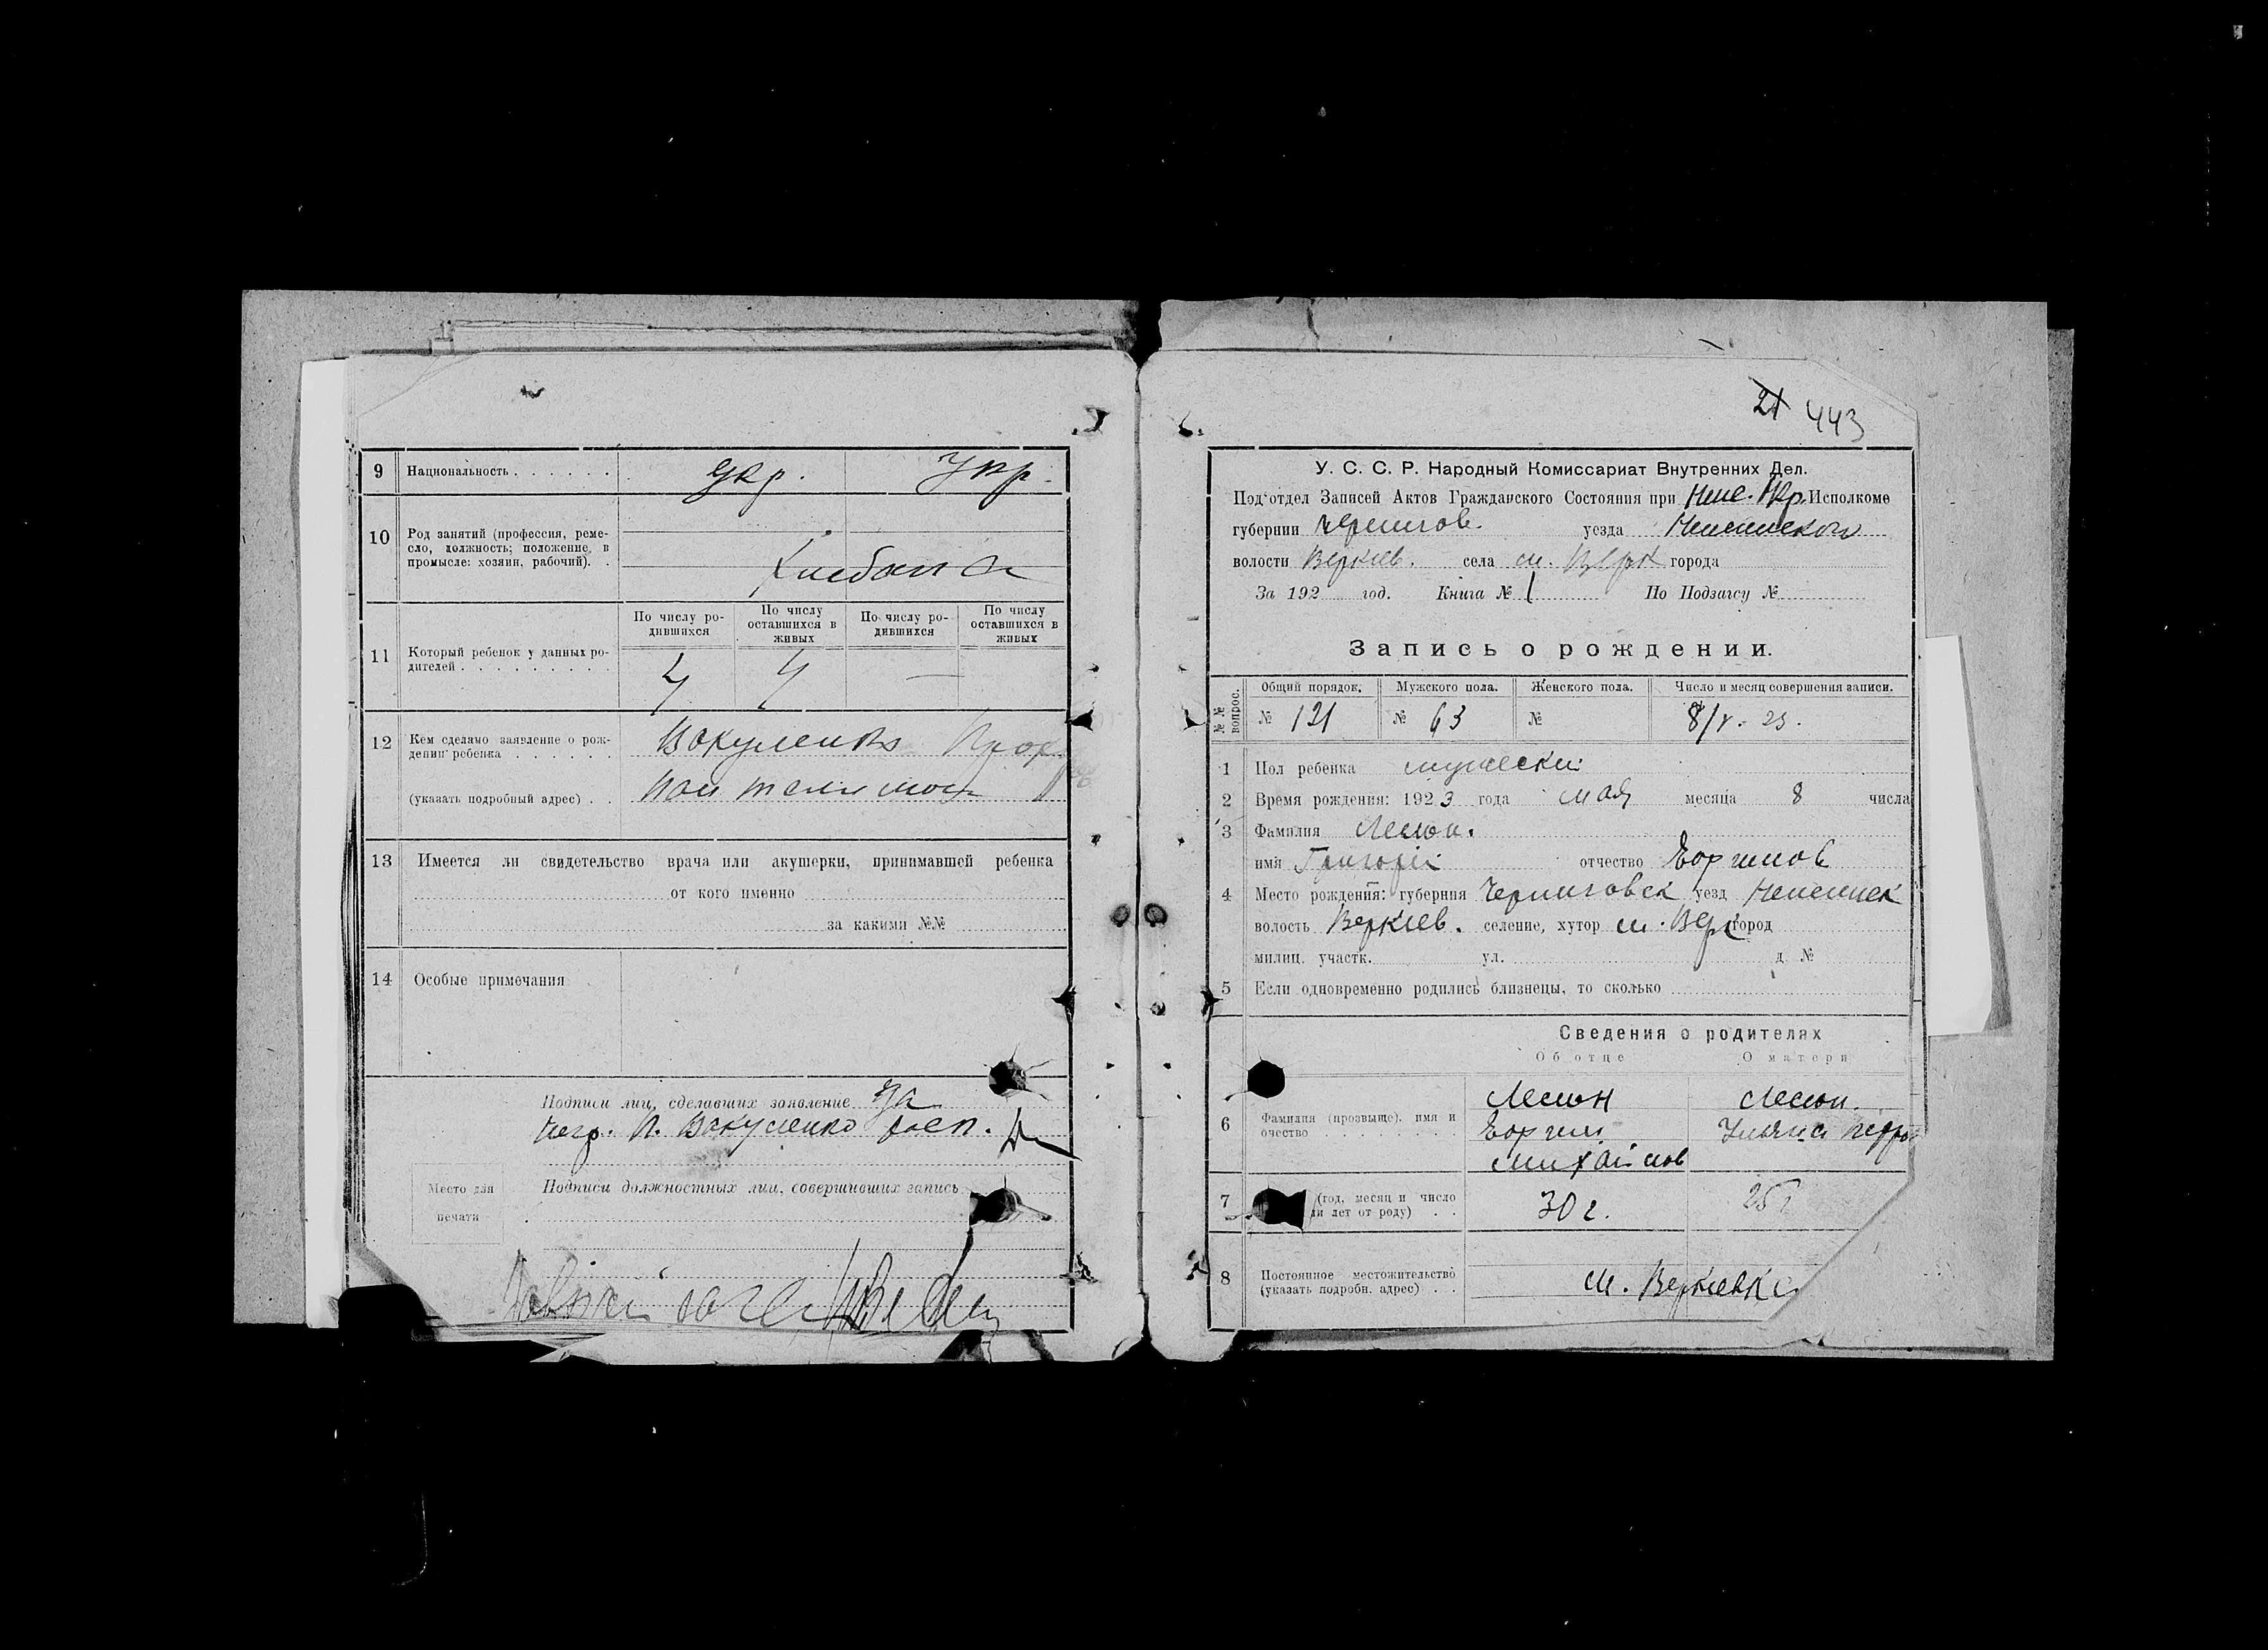 9 Национальность . . . . . . укр. Укр.
10 Род занятий (профессия, реме-
сло, должность; положение в
промысле: хозяин, рабочий). .
11 Который ребенок у данных ро-
дителей . . . . . . . . .
По числу ро-
дившихся
По числу
оставшихся в
живых
По числу ро-
дившихся
По числу
оставшихся в
живых
4 4 —
12 Кем сделано заявление о рож-
дении ребенка . . . . . . Вакуленко
(указать подробный адрес) . .
13 Имеется ли свидетельство врача или акушерки, принимавшей ребенка
от кого именно
за какими №№
14 Особые примечания
Подписи лиц, сделавших заявление За
негр. П. Вакуленко расп.
Место для
печати
Подписи должностных лиц, совершивших запись
21 443
У. С. С. Р. Народный Комиссариат Внутренних Дел.
Под'отдел Записей Актов Гражданского Состояния при Исполкоме
губернии Чернигов. уезда Неженского
волости Веркиев. села м. Верк города
За 192 год. Книга № 1 По Подзагсу №
Запись о рождении.
№ № вопрос.
Общий порядок. Мужского пола. Женского пола. Число и месяц совершения записи.
№ 121 № 63 № 8/V. 23.
1 Пол ребенка мужески
2 Время рождения: 1923 года мая месяца 8 числа
3 Фамилия Лемон.
имя Григорій отчество
4 Место рождения: губерния Черниговск уезд Неженск
волость Веркиев. селение, хутор м. Верк город
милиц. участк. ул. д. №
5 Если одновременно родились близнецы, то сколько
Сведения о родителях
Об отце О матери
6 Фамилия (прозвище), имя и
очество . . . . . . . .
Лемон Лемон.
Ульяна
Михайлов
7 (год, месяц и число
ли лет от роду) . . 30 г. 25 г
8 Постоянное местожительство
(указать подробн. адрес) . . м. Веркиевка